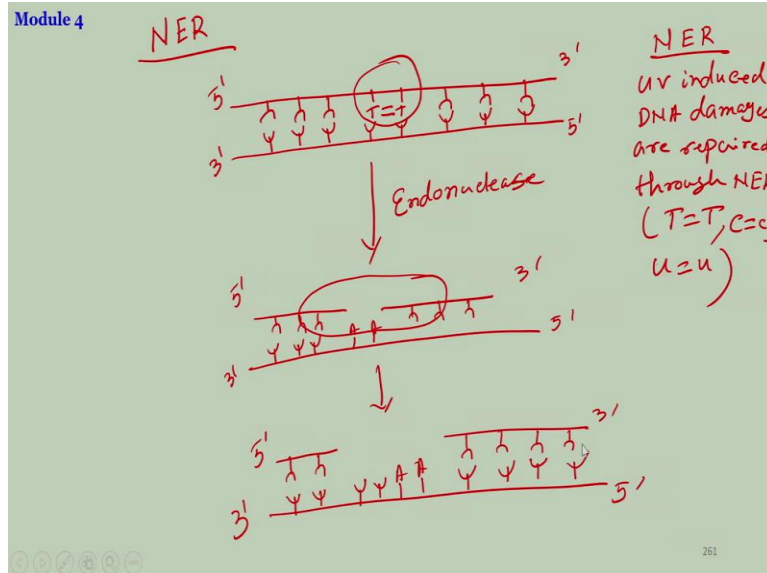 Module 4
NER
5' 3'
T=T
3' 5'
Endonuclease
5' 3'
A A
3' 5'
5' 3'
A A
3' 5'
NER
UV induced
DNA damages
are repaired
through NER
(T=T, C=C
U=U)
261